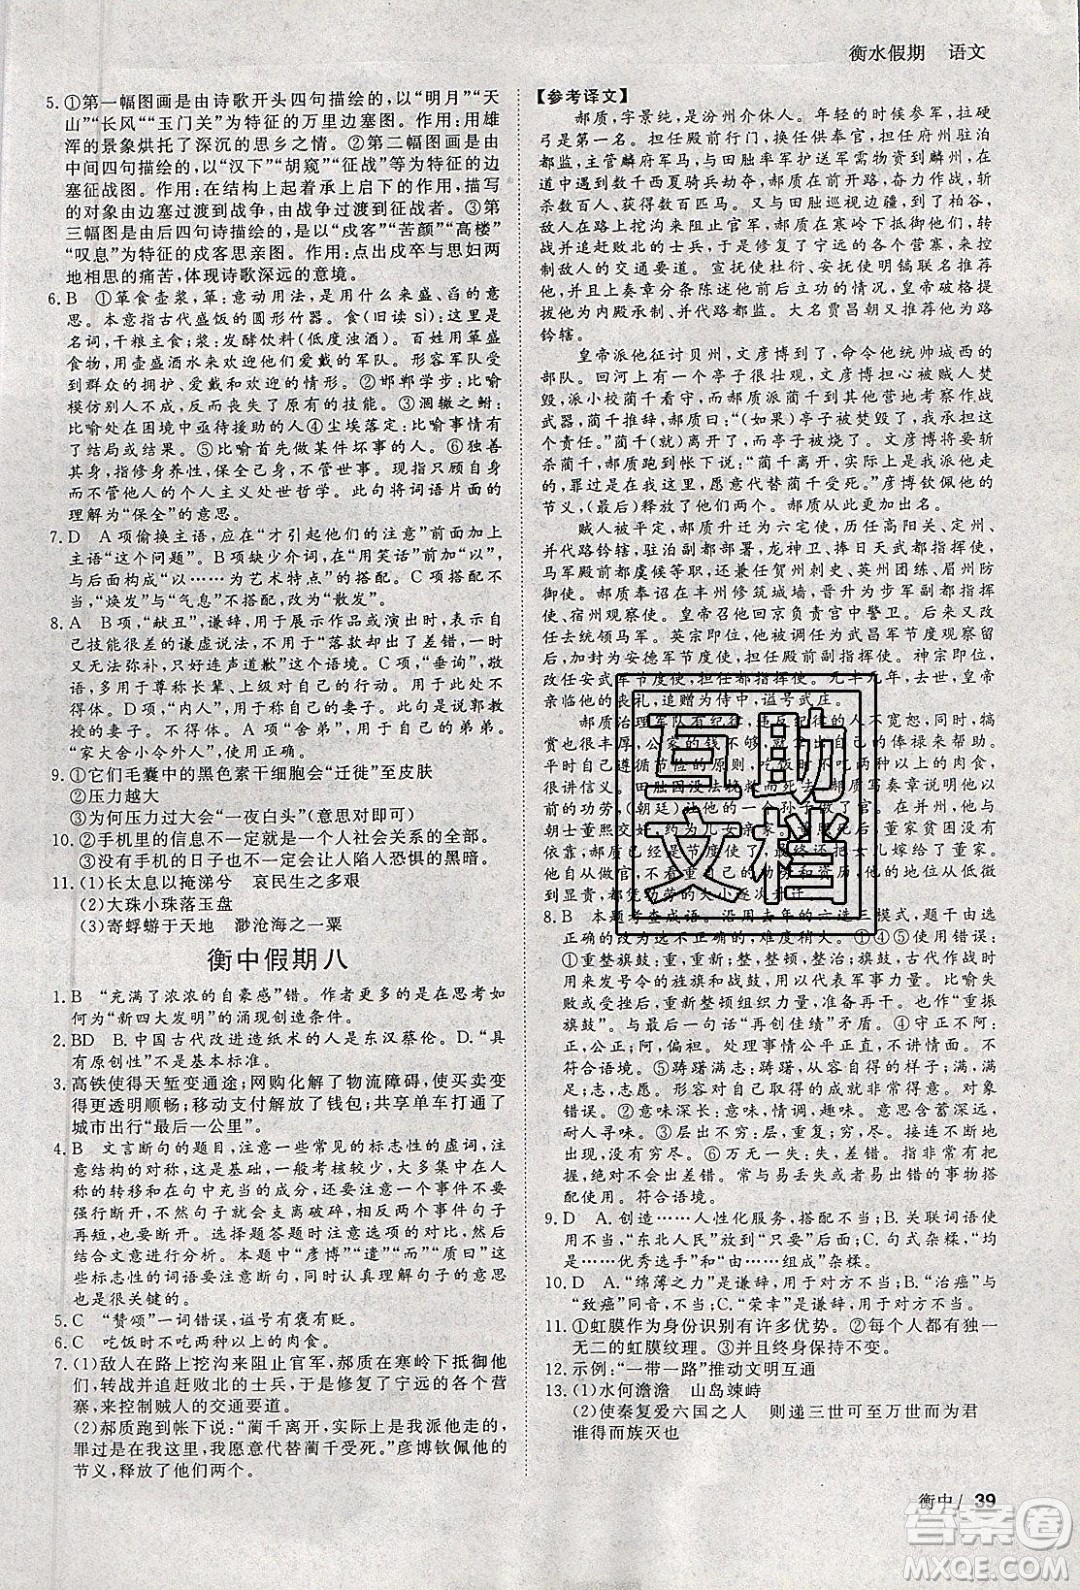 衡水假期　语文
5.①第一幅图画是由诗歌开头四句描绘的，以“明月”“天
山”“长风”“玉门关”为特征的万里边塞图。作用：用雄
浑的景象烘托了深沉的思乡之情。②第二幅图画是由
中间四句描绘的，以“汉下”“胡窥”“征战”为特征的
边塞征战图。作用：在结构上承上启下的作用，描写
的对象由边塞过渡到战争，由战争过渡到征战者。③第
三幅图画由后四句诗构成，以“戍客”“苦颜”“高楼”
“叹息”为特征的戍客思亲图。作用：点出戍卒与思妇两
地相思的痛苦，体现诗歌深远的意境。
6. B　①箪食壶浆，箪：意动用法，是用来盛、舀的意
思。本意指古代盛饭的圆形竹器。食（旧读 sì）：这里是
名词，干粮主食；浆：发酵饮料（低度浊酒）。百姓用箪盛
食物，用壶盛酒水来欢迎他们爱戴的军队。形容军队受
到群众的拥护、爱戴和欢迎的情形。②邯郸学步：比喻
模仿别人不成，反而丧失了原有的技能。③涸辙之鲋：
比喻处在困境中亟待援助的人④尘埃落定：比喻事情有
了结局或结果。⑤比喻首先做某件坏事的人。⑥独善
其身，指修身养性，保全己身，不管世事。现指只顾自
己，不管他人的个人主义处世哲学。此句将词语片面的
理解为“保全”的意思。
7. D　A 项偷换主语，应在“才引起他们的注意”前面加上
主语“这个问题”。B 项缺少介词，在“用笑话”前加“以”，
再构成“以……为艺术特点”的搭配。C 项搭配不当，
“焕发”与“气息”不搭配，应该为“散发”。
8. A　B 项，“献丑”，谦辞，用于展示作品或演出时，表示自
己技能很差的谦虚说法，不适用于“落款却出了差错，已
无法弥补，只好连声道歉”这个语境。C 项，“垂询”，敬
辞，多用于尊称长辈、上级对自己的询问。用在此处不
得体。D 项，“内人”，用于称自己的妻子。此句是说郭
教授的妻子，所以不得体。A 项“舍弟”，称自己的弟弟。
“家大舍小令外人”，使用正确。
9.①它们毛囊中的黑色素干细胞会“迁徙”至皮肤
②压力越大
③为何压力过大会“一夜白头”（意思对即可）
10.②手机里的信息不一定就是一个人社会关系的全部。
③没有手机的日子也不一定会让人陷入恐惧的黑暗。
11.(1)长太息以掩涕兮　哀民生之多艰
(2)大珠小珠落玉盘
(3)寄蜉蝣于天地　渺沧海之一粟
衡中假期八
1. B　“充满了浓浓的自豪感”错。作者更多的是在思考如
何为“新四大发明”的涌现创造条件。
2. BD　B.中国古代改进造纸术的人是东汉蔡伦。D.“具
有原创性”不是基本标准。
3.高铁使得天堑变通途；网购化解了物流障碍，使买卖变
得更透明顺畅；移动支付化解了钱包；共享单车打通了
城市出行“最后一公里”。
4. B　文言断句的题目，注意一些常见的标志性的虚词，注
意结构的对称，一般考核找到，大多集中在人
称的转移和在句中充当的成分，一个事件不要
强行断开，不然句子会支离破碎，两个事件不要放到一个句子
再短，也要断开。选择题答题注意对比选项，然后
结合文意进行分析。本题中“彦博”“遣”“而”“质曰”这
些标志性的词语要注意断句，同时注意句子的意思
也是很关键的。
5. C　“赞颂”一词错误，谥号有褒有贬。
6. C　吃饭时不吃两种以上的肉食。
7.(1)敌人在路上挖沟来阻止官军，郝质在寒岭与敌酣战，
转战并追赶败北的士兵，于是修复了宁远的各个营
寨，来控制贼人的交通要道。
(2)郝质跑到帐下说：“蔺千离开，实际上是我派他去的，
罪过是在我，我愿意代替蔺千受死。”彦博钦佩他的
节义，于是释放了他们两个。
【参考译文】
郝质，字景纯，是汾州介休人。年轻的时候参军，拉硬
弓是第一名。担任殿前行门，换任供奉官，担任府州驻泊
都监，主管麟府军马，与田朏率军护送军需物资到麟州，在
道中遇到数千西夏骑兵劫夺，郝质在前开路，奋力作战，斩
杀数百人、获得数百匹马。又与田朏巡视边疆，到了柏谷，
敌人在路上挖沟阻止官军，郝质在寒岭下抵御他们作战，
转战并追赶败北的士兵，于是修复了宁远的各个营寨，来
控制敌人的交通要道。宣抚使杜衍、安抚使明镐联名推荐
他，并上奏章分条陈述他前后立功的情况，皇帝破格提升
他为内殿承制、并代路都监。大名贾昌朝又推荐他为路
钤辖。
皇帝派他征讨贝州，文彦博到了，命令他统帅城西的
部队。回河上有一个亭子很壮观，文彦博担心被贼人焚
毁，派小校蔺千看守，而郝质派蔺千到其他营地考察作战
武器，蔺千推辞，郝质曰：“（如果）亭子被焚毁了，我来承担
这个责任。”蔺千（就）离开了，于是亭子被烧了。文彦博将要斩
杀蔺千，郝质跑到帐下说：“蔺千离开，实际上是我派他去
的，罪过是在我，愿意代替蔺千受死。”彦博钦佩他的
节义，（最后）释放了他们两个。郝质从此更加出名。
贼人被平定，郝质升迁为六宅使，历任高阳关、定州、
并代路钤辖，驻泊副都部署，龙神卫、捧日天武都指挥使，
马军殿前都虞候等职，还兼任贺州刺史、英州团练、眉州
防御使。郝质奉诏在丰州修筑城墙，晋升为步军副都指
挥使、宿州观察使。皇帝召他回京负责宫中警卫。后来又
改任去统领马军。英宗即位，升任他为武昌军节度观察留
后，加封为安德军节度使，担任殿前副都指挥使。神宗即位，
改任安武军节度使，担任都指挥使。元丰元年，去世，皇帝
亲临他的丧礼，追赠为侍中，谥号武庄。
郝质治理军队有纪律，违反规定的人不宽恕，同时，犒
赏也很丰厚，公家的钱不够，就拿出自己的俸禄来帮助补
足。平时生活遵循节俭的原则，吃饭不吃两种以上的肉食，
很讲信义。田朏因没法接救⋯⋯
前的功劳，（朝廷）让他的一个孙子做了官。在并州，他与
朝士董熙交好，约为儿女亲家。董熙早死，董家贫困没有
依靠，郝质已经是节度使了，最终还是把女儿嫁给了董家。
从卑微到显贵⋯⋯
8. B　本题考查成语。沿用去年的六选三模式，题干由选
正确的改为选不正确的，难度稍大。注意成语使用错误：
①重整旗鼓，重：重新；整：整顿，整治；旗鼓：古代作战时以
摇旗和击鼓为进攻的信号，因此旗鼓代表军事力量。比喻失败
或受挫后，重新整顿组织力量，准备再干。也作“重振
旗鼓”。与最后一句话“再创佳绩”矛盾。④守正不阿：
正，公正；阿，偏袒。处理事情公平正直，不讲情面。不
符合语境。⑤踌躇满志：踌躇，从容自得的样子；满，满
足；志，志愿。形容对自己取得的成就非常得意。对象
错误。②意味深长：意味，情调，趣味。意思含蓄深远，
耐人寻味。③层出不穷：层，重复；穷，尽。接连不断地
出现，没有穷尽。⑥万无一失：失，差错。指非常有把
握，绝对不会出差错。常与易丢失或者易出错的事物搭
配使用。符合语境。
9. D　A.创造……人性化服务，搭配不当；B.关联词语使
用有误，“东北人民”应放到“只要”后面；C.句式杂糅，“是
……优秀选手”和“由……组成”杂糅。
10. D　A.“绵薄之力”是谦辞，用于对方不当；B.“治癌”与
“致癌”同音，不得体；C.“荣幸”是谦辞，用于对方不当。
11.①虹膜作为身份识别有许多优势。②每个人都有独一
无二的虹膜纹理。③并且终身保持不变
12.示例：“一带一路”推动文明互通
13.(1)水何澹澹　山岛竦峙
(2)使秦复爱六国之人　则递三世可至万世而为君
谁得而族灭也
互助文档
衡中/ 39
答案圈
MXQE.COM